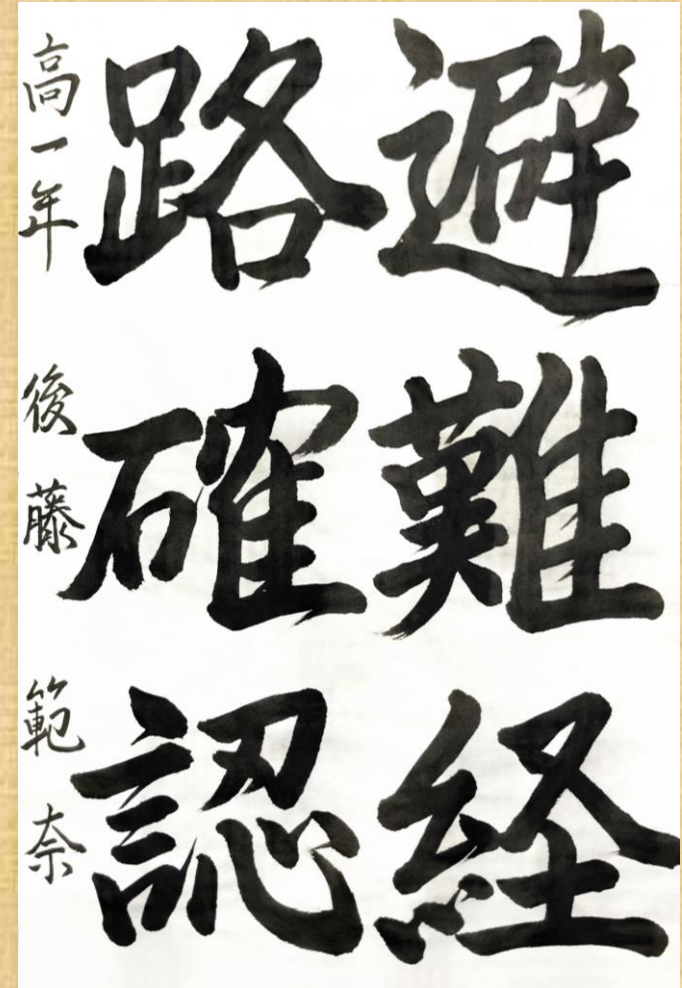 避難経
路確認
高一年 後藤 範奈